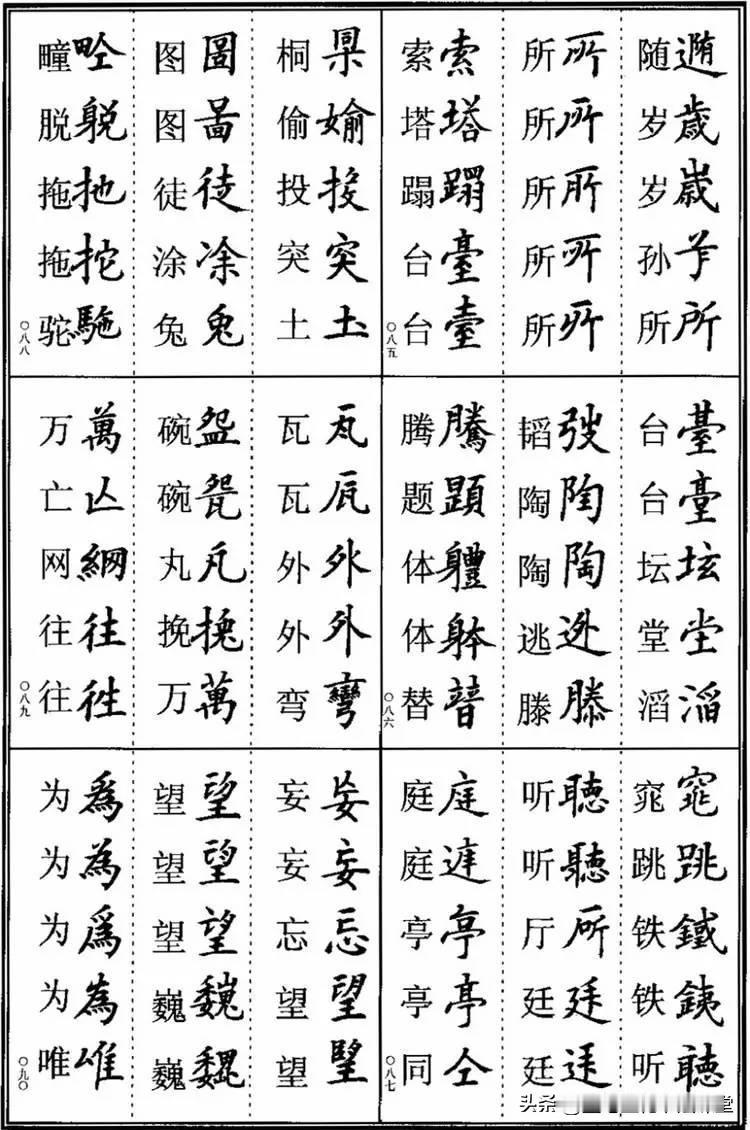 随 岁歳 岁嵗 孙 所所
所所 所所 所所 所所 所所
索索 塔塔 蹋蹋 台臺 台臺
〇八五
台臺 台臺 坛坛 堂坣 滔滔
韬弢 陶陶 陶陶 逃迯 滕滕
腾騰 题題 体軆 体躰 替朁
〇八六
窕窕 跳跳 铁鐵 铁銕 听聽
听聽 听聽 厅所 廷廷 廷
庭庭 庭 亭亭 亭亭 同仝
〇八七
桐杲 偷媮 投投 突突 土圡
图圖 图啚 徒徒 涂凃 兔兎
疃畍 脱躰 拖扡 拖拕 驼駞
〇八八
瓦瓦 瓦瓦 外外 外外 弯彎
碗盌 碗㼝 丸凡 挽挽 万萬
万萬 亡亾 网網 往往 往徃
〇八九
妄妄 妄妄 忘忘 望望 望朢
望望 望望 望望 巍巍 巍巍
为為 为為 为爲 为為 唯唯
〇九〇
头条
堂